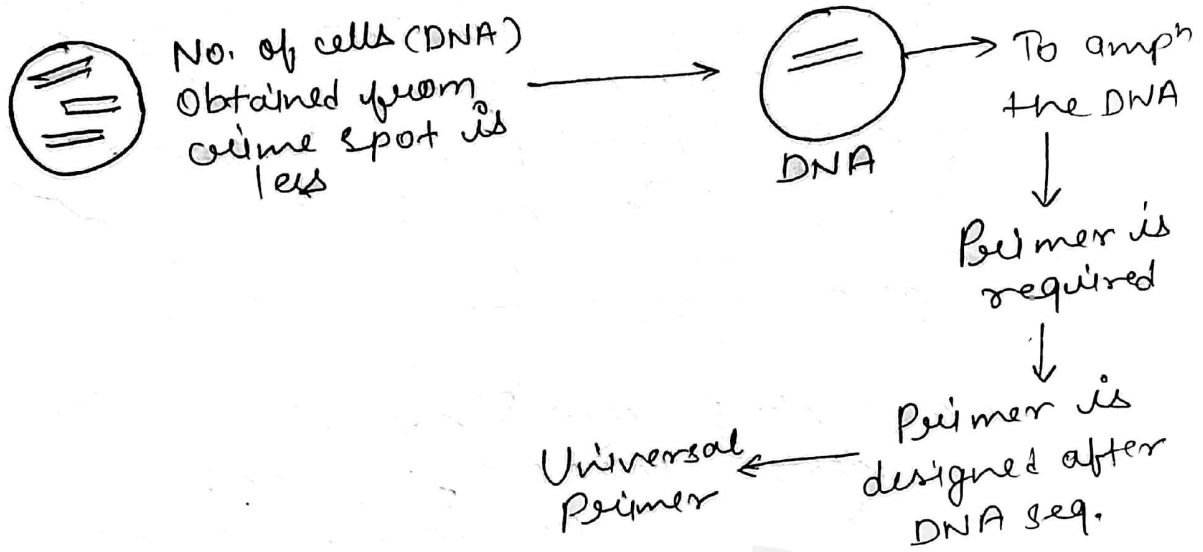 No. of cells (DNA)
Obtained from
crime spot is
less
DNA
To ampⁿ
the DNA
Primer is
required
Primer is
designed after
DNA seq.
Universal
Primer